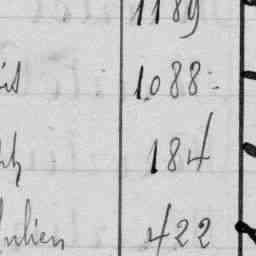 1189
1088
184
ulien 422